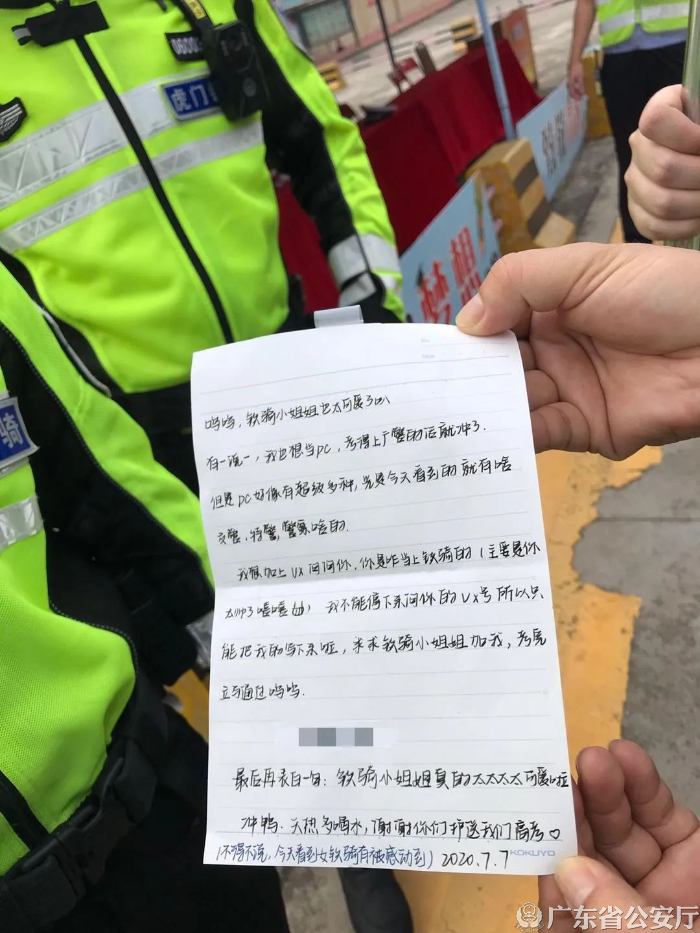 虎门
骑
梦想
呜呜,铁骑小姐姐也太可爱了叭
有一说一,我也想当PC,考得上广警的话就冲了
但是PC好像有超级多种,光是今天看到的就有啥
交警,特警,警察啥的.
我想加上VX问问你,你是咋当上铁骑的(主要是你
太a了嘻嘻),我不能停下来问你的VX号所以只
能把我的写下来啦,求求铁骑小姐姐加我,考完
立马通过呜呜.
最后再表白一句:铁骑小姐姐真的太太太太可爱啦
冲鸭:天热多喝水,谢谢你们护送我们高考♡
(不得不说,今天看到女铁骑有被感动到) 2020.7.7
KOKUYO
广东省公安厅